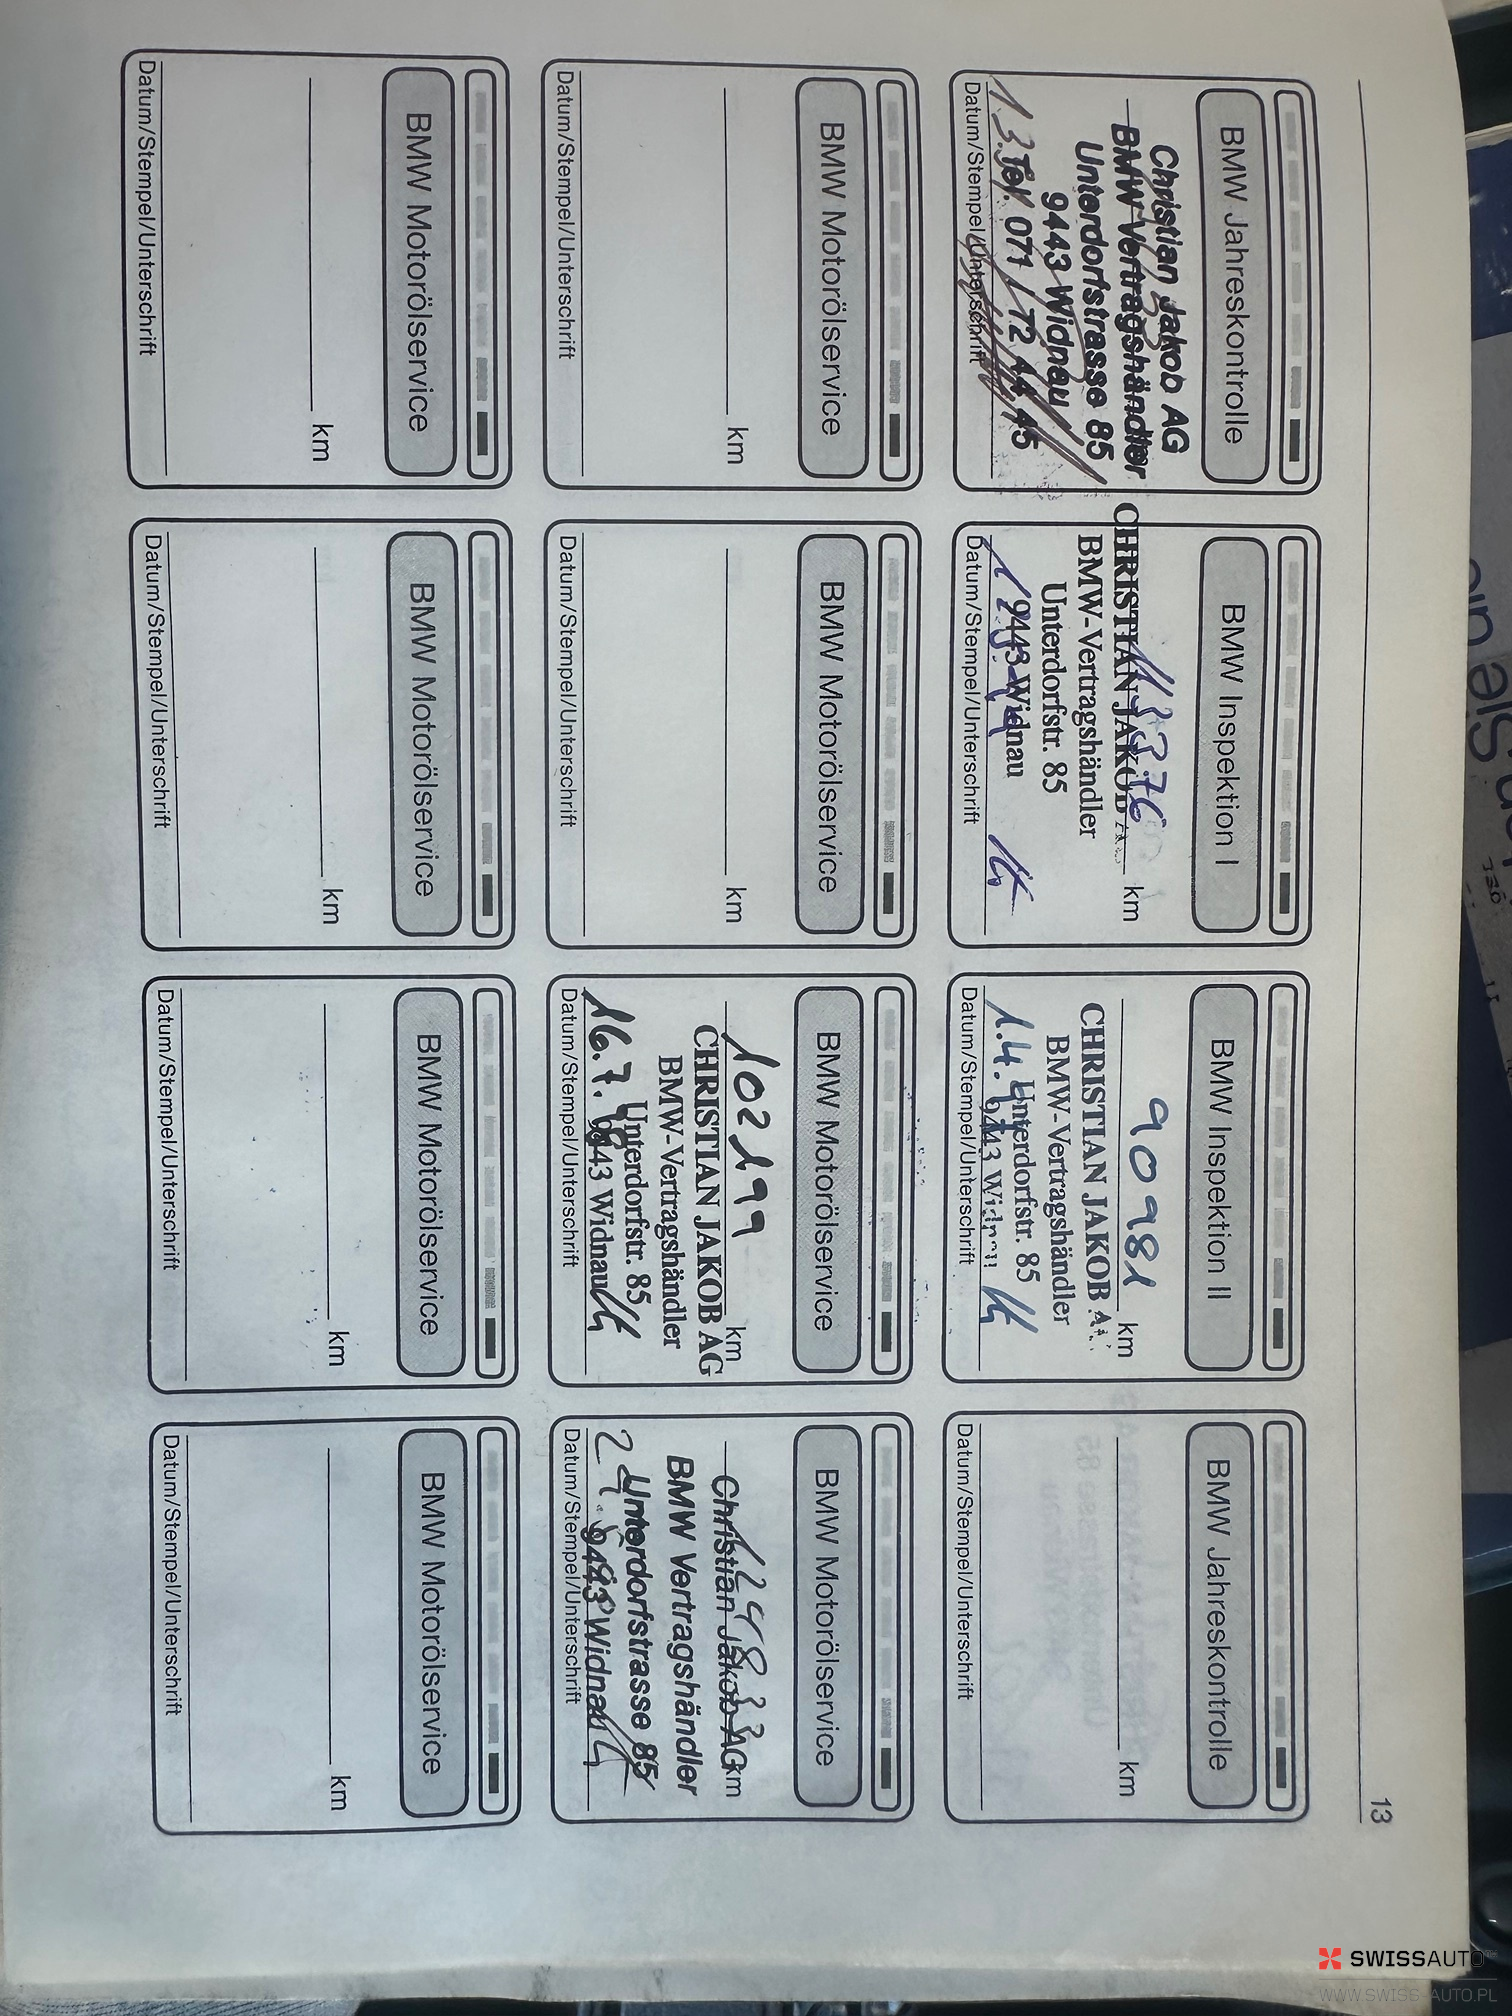 13
BMW Jahreskontrolle
Christian Jakob AG
BMW Vertragshändler
Unterdorfstrasse 85
9443 Widnau
Tel. 071 / 72 44 45
Datum/Stempel/Unterschrift
BMW Inspektion I
113376
km
CHRISTIAN JAKOB
BMW-Vertragshändler
Unterdorfstr. 85
9443 Widnau
Datum/Stempel/Unterschrift
BMW Inspektion II
90981
km
CHRISTIAN JAKOB
BMW-Vertragshändler
Unterdorfstr. 85
1.4.
9443
Datum/Stempel/Unterschrift
BMW Jahreskontrolle
km
Datum/Stempel/Unterschrift
BMW Motorölservice
km
Datum/Stempel/Unterschrift
BMW Motorölservice
km
Datum/Stempel/Unterschrift
BMW Motorölservice
102199
km
CHRISTIAN JAKOB AG
BMW-Vertragshändler
Unterdorfstr. 85
16.7.
9443 Widnau
Datum/Stempel/Unterschrift
BMW Motorölservice
km
Christian Jakob AG
BMW Vertragshändler
Unterdorfstrasse 85
9443 Widnau
Datum/Stempel/Unterschrift
BMW Motorölservice
km
Datum/Stempel/Unterschrift
BMW Motorölservice
km
Datum/Stempel/Unterschrift
BMW Motorölservice
km
Datum/Stempel/Unterschrift
BMW Motorölservice
km
Datum/Stempel/Unterschrift
SWISSAUTO
WWW.SWISS-AUTO.PL